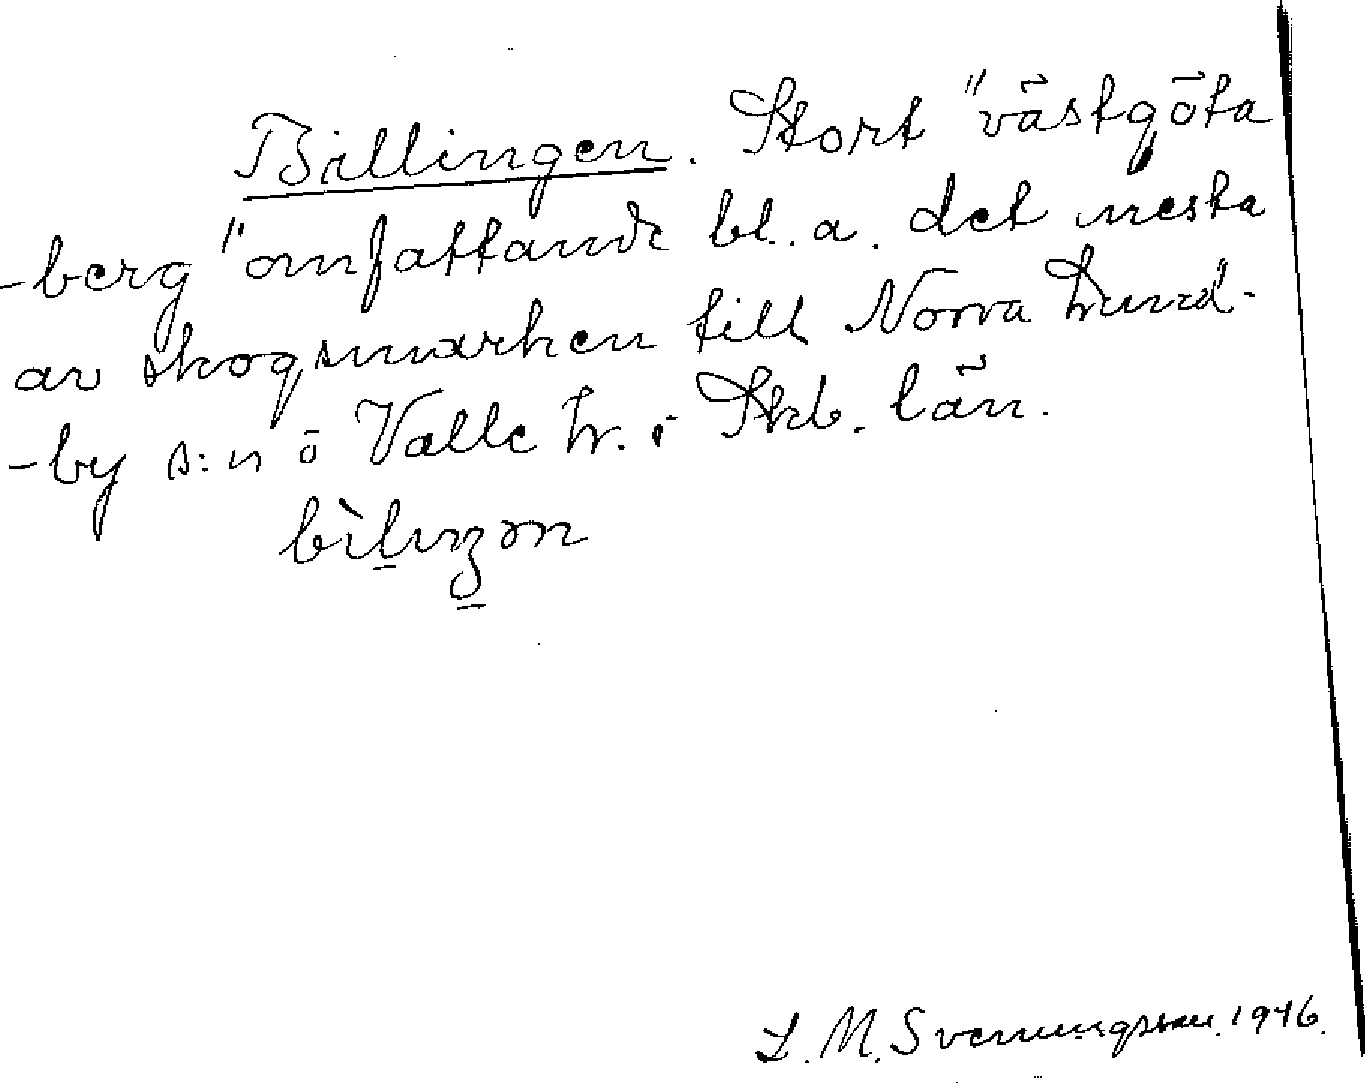 Billingen. Stort "västgöta
-berg" omfattande bl. a. det mesta
av skogsmarken till Norra Lund-
-by s:n i Valle hr. i Skb. län.
L. M. Svenungsson. 1946.